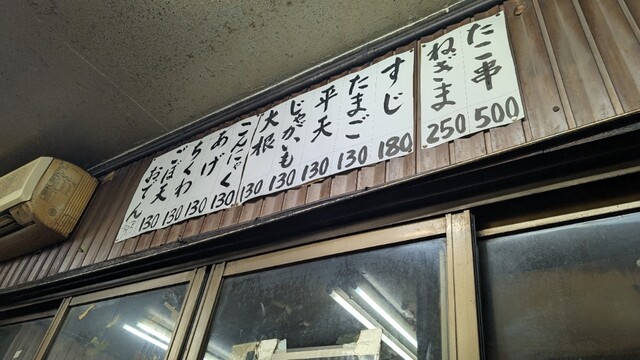 たこ串 500
ねぎま 250
すじ 180
たまご 130
平天 130
じゃがいも 130
大根 130
こんにゃく 130
あげ 130
ちくわ 130
ごぼ天 130
おでん